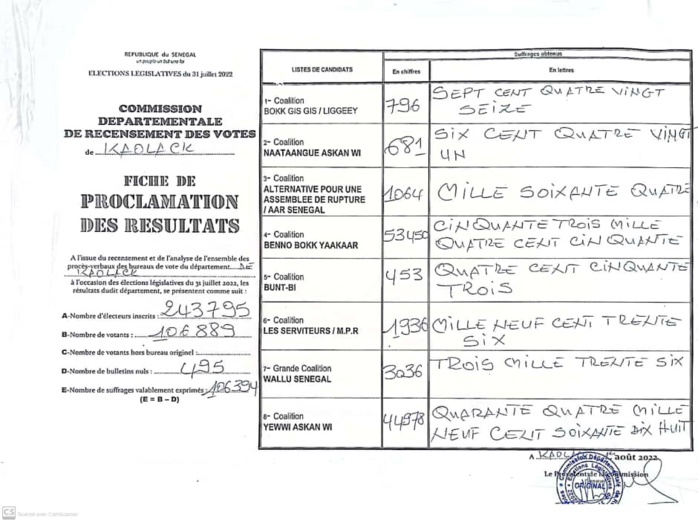 REPUBLIQUE DU SENEGAL
un peuple un but une foi
ELECTIONS LEGISLATIVES du 31 juillet 2022
COMMISSION
DEPARTEMENTALE
DE RECENSEMENT DES VOTES
de KAOLACK
FICHE DE
PROCLAMATION
DES RESULTATS
A l'issue du recensement et de l'analyse de l'ensemble des
procès-verbaux des bureaux de vote du département DE
KAOLACK
à l'occasion des élections législatives du 31 juillet 2022, les
résultats dudit département, se présentent comme suit :
A-Nombre d'électeurs inscrits : 243795
B-Nombre de votants : 106889
C-Nombre de votants hors bureau originel :
D-Nombre de bulletins nuls : 495
E-Nombre de suffrages valablement exprimés : 106394
(E = B – D)
Suffrages obtenus
LISTES DE CANDIDATS En chiffres En lettres
1- Coalition
BOKK GIS GIS / LIGGEEY
796
SEPT CENT QUATRE VINGT
SEIZE
2- Coalition
NAATAANGUE ASKAN WI
681
SIX CENT QUATRE VINGT
UN
3- Coalition
ALTERNATIVE POUR UNE
ASSEMBLEE DE RUPTURE
/ AAR SENEGAL
1064
MILLE SOIXANTE QUATRE
4- Coalition
BENNO BOKK YAAKAAR
53450
CINQUANTE TROIS MILLE
QUATRE CENT CINQUANTE
5- Coalition
BUNT-BI
453
QUATRE CENT CINQUANTE
TROIS
6- Coalition
LES SERVITEURS / M.P.R
1936
MILLE NEUF CENT TRENTE
SIX
7- Grande Coalition
WALLU SENEGAL
3036
TROIS MILLE TRENTE SIX
8- Coalition
YEWWI ASKAN WI
44978
QUARANTE QUATRE MILLE
NEUF CENT SOIXANTE DIX HUIT
A KAOLACK août 2022
ORIGINAL
CS